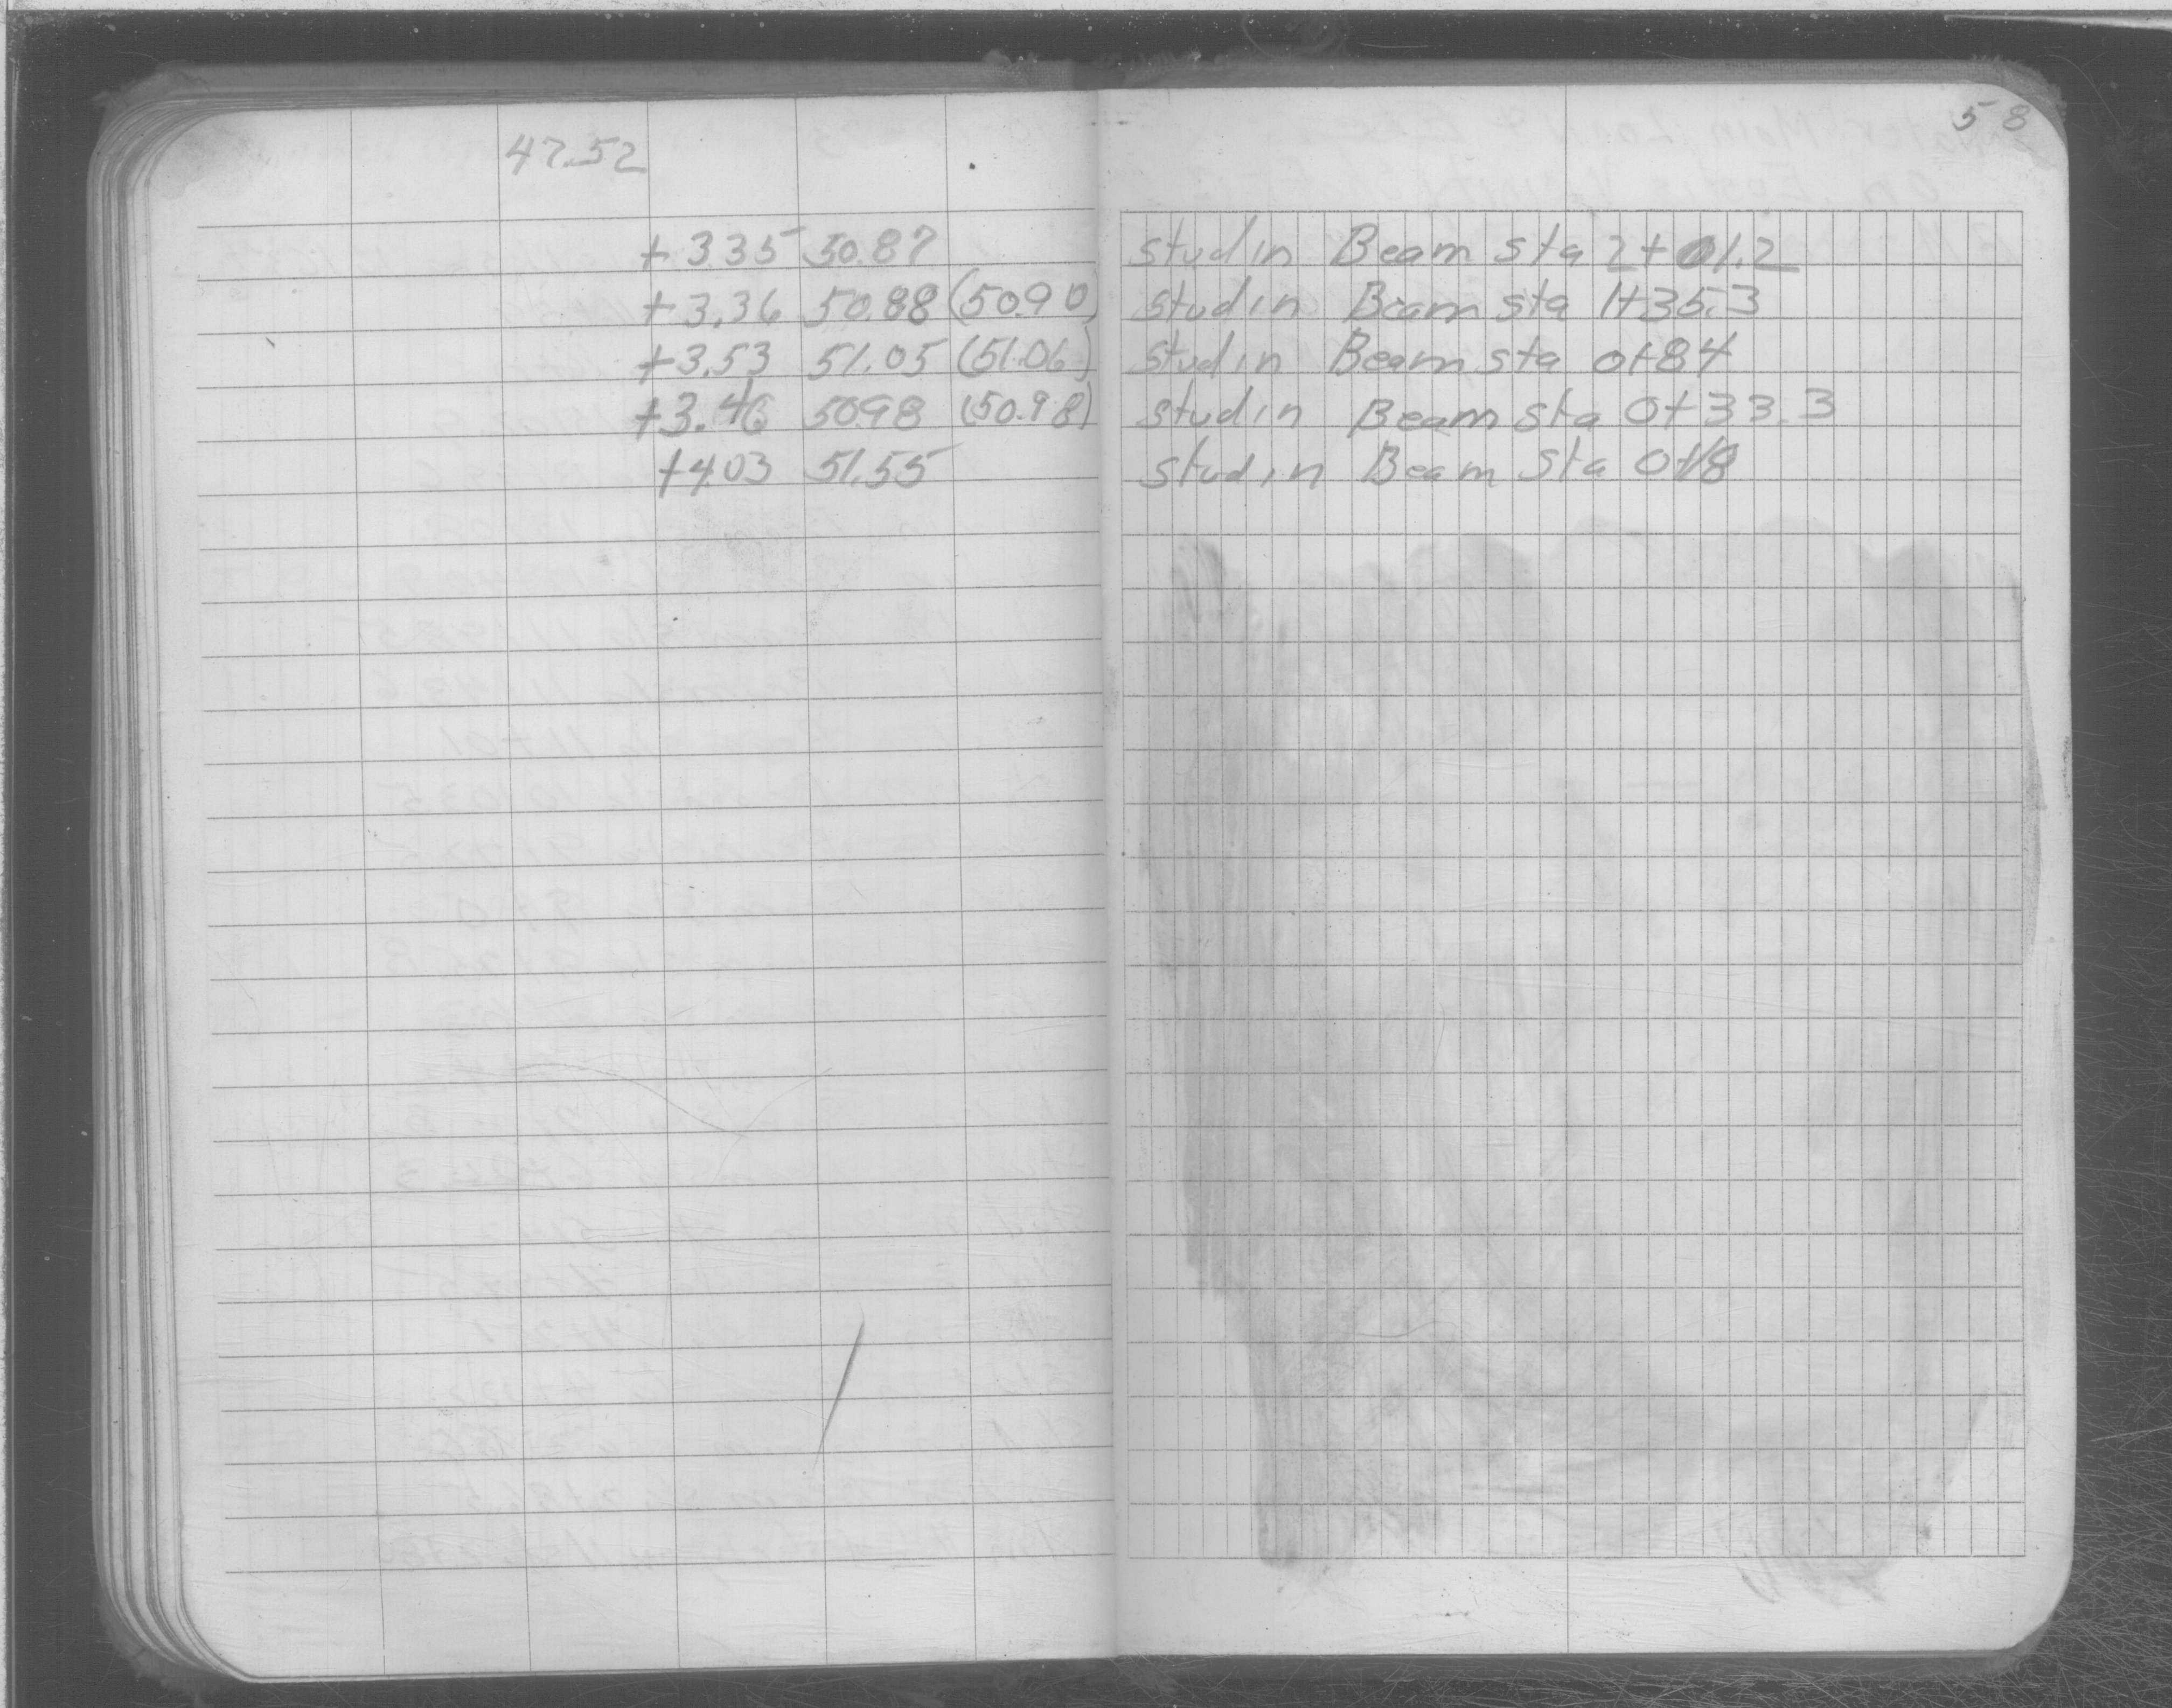 58
47.52
+ 3.35 50.87 stud in Beam sta 2+01.2
+3.36 50.88 (50.90) stud in Beam sta 1+35.3
+3.53 51.05 (51.06) stud in Beam sta 0+84
+3.46 50.98 (50.98) stud in Beam sta 0+33.3
+4.03 51.55 stud in Beam sta 0+18